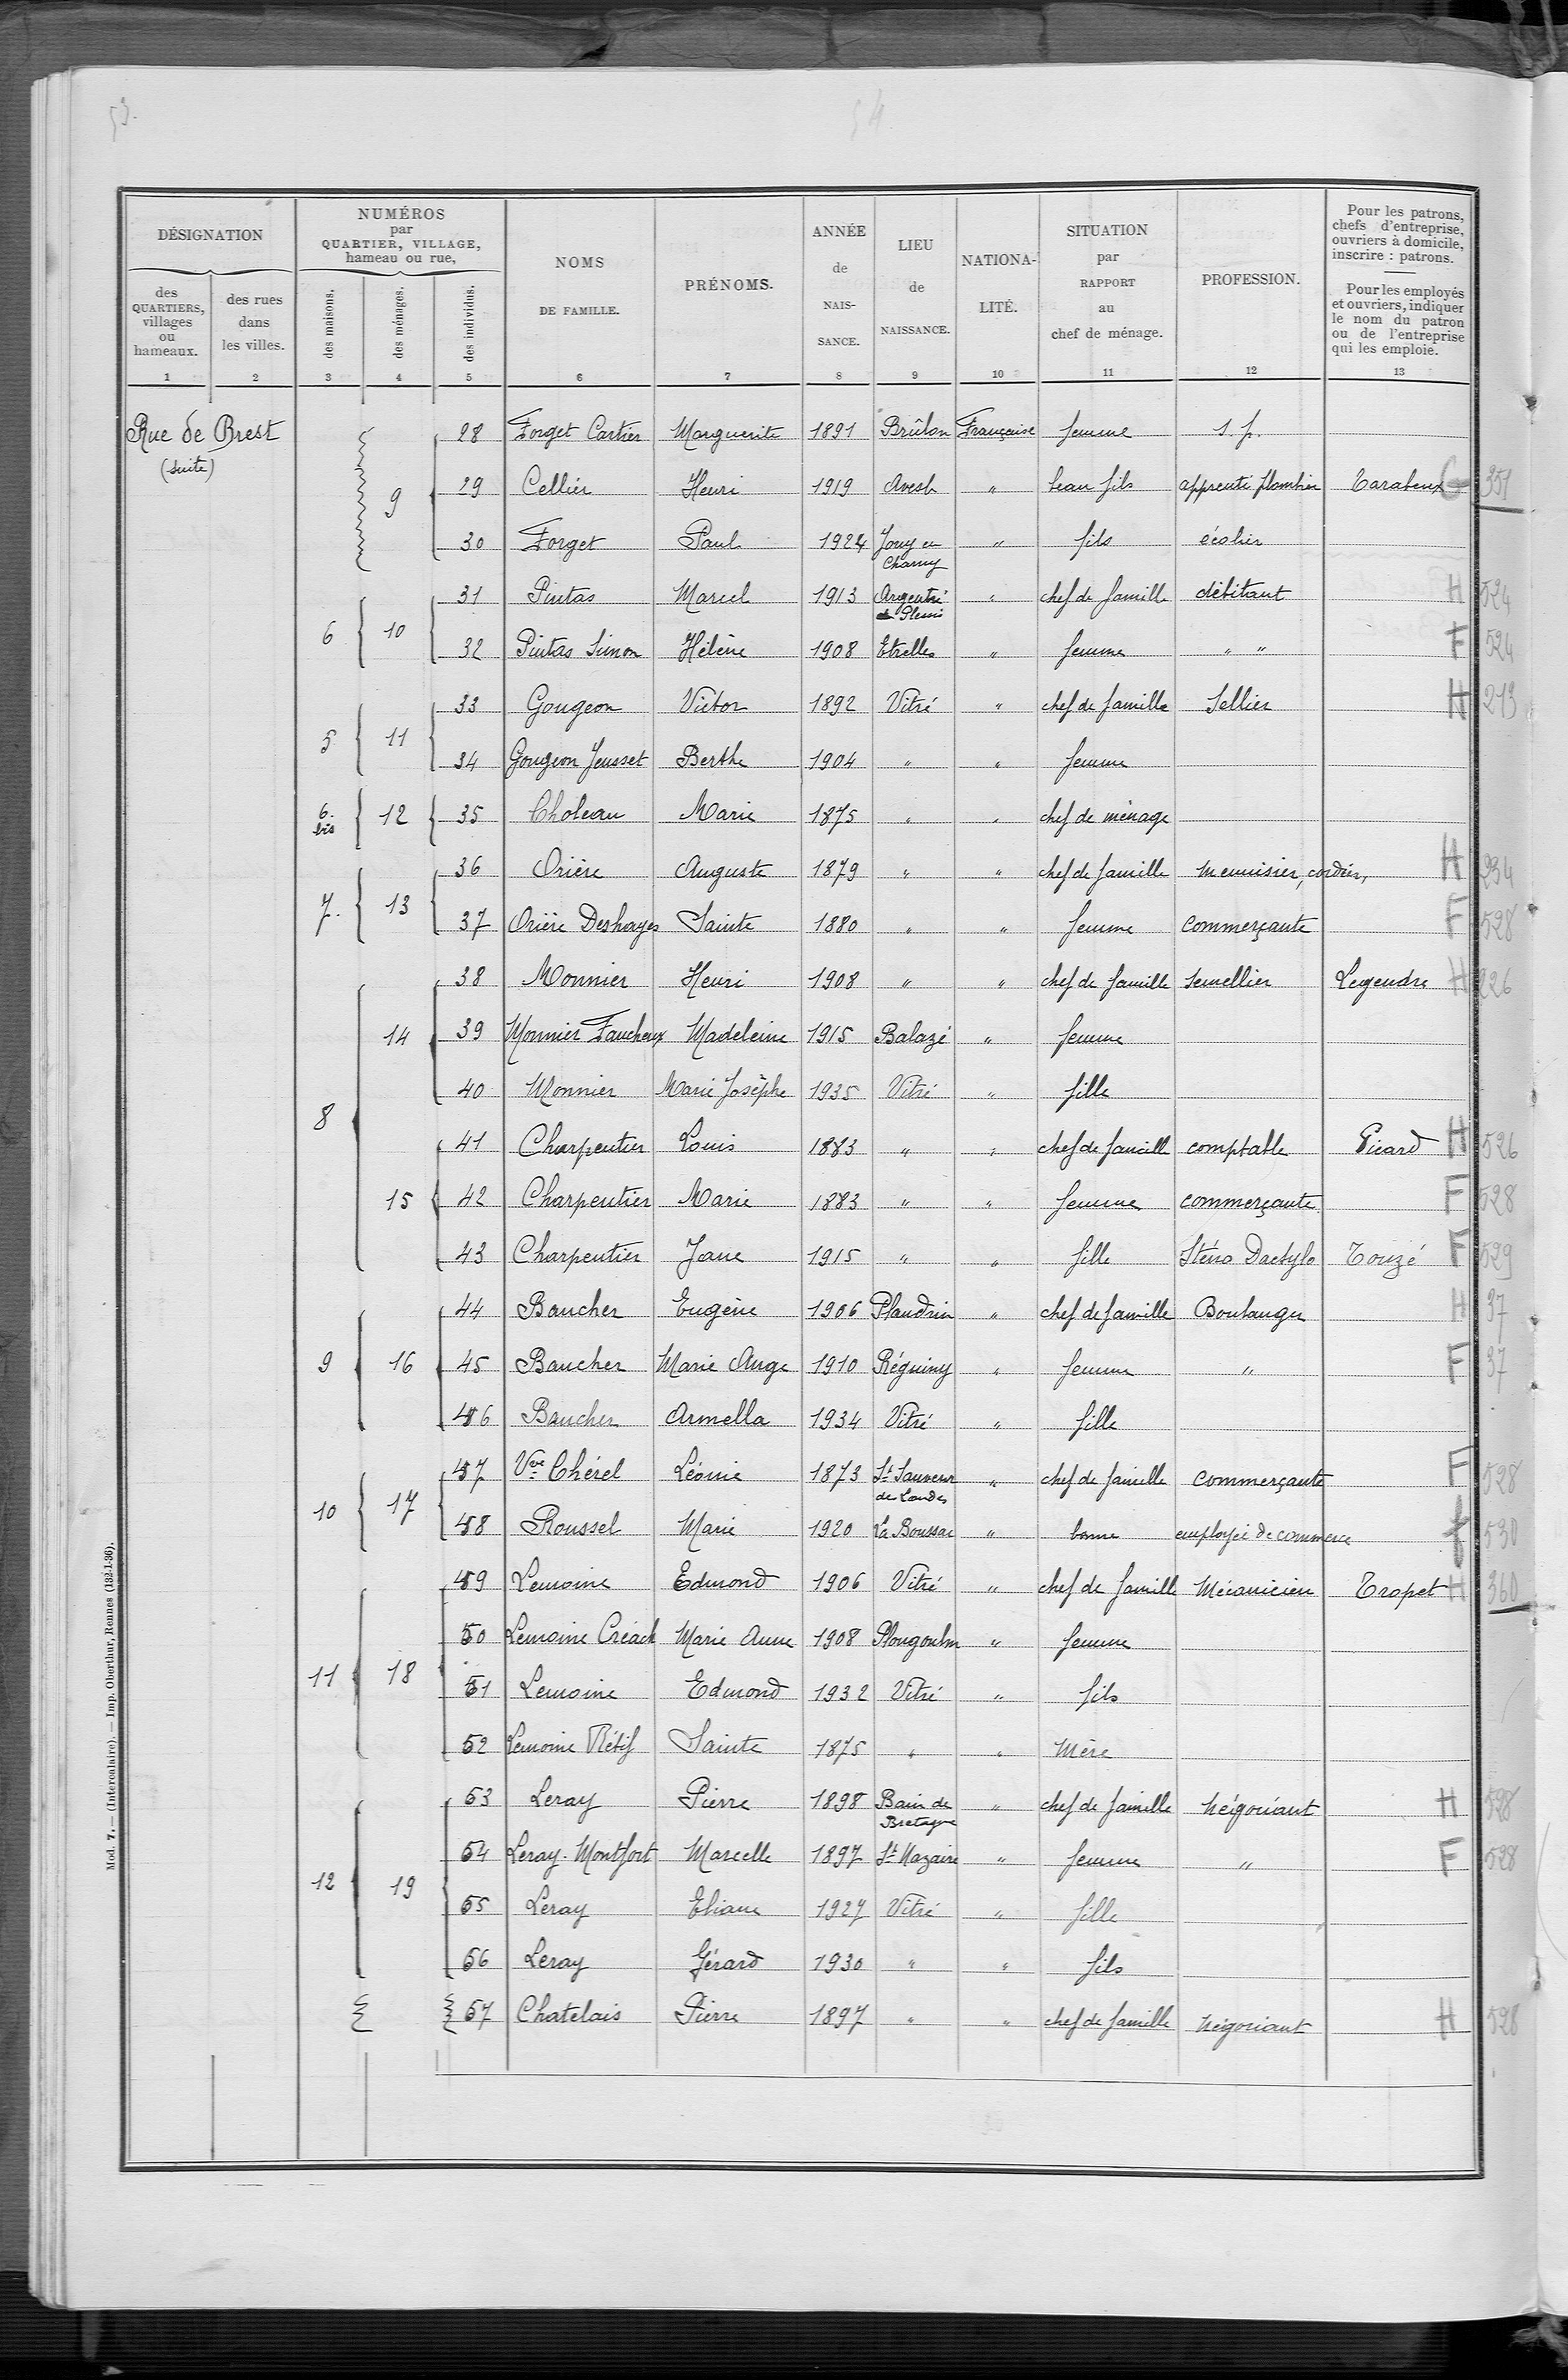 53.
54
DÉSIGNATION
des QUARTIERS, villages ou hameaux.
des rues dans les villes.
NUMÉROS par QUARTIER, VILLAGE, hameau ou rue,
des maisons.
des ménages.
des individus.
NOMS DE FAMILLE.
PRÉNOMS.
ANNÉE de NAIS- SANCE.
LIEU de NAISSANCE.
NATIONA- LITÉ.
SITUATION par RAPPORT au chef de ménage.
PROFESSION.
Pour les patrons, chefs d'entreprise, ouvriers à domicile, inscrire : patrons.
Pour les employés et ouvriers, indiquer le nom du patron ou de l'entreprise qui les emploie.
1 2 3 4 5 6 7 8 9 10 11 12 13
Rue de Brest
(suite)
28 Forget Cartier Marguerite 1891 Brûlon Française femme s. p.
9 29 Cellier Henri 1919 Avesb " beau fils apprenti plombier Tarabeux G 351
30 Forget Paul 1924 Jouy en Charny " fils écolier
31 Pintas Marcel 1913 Argentré Plessis " chef de famille débitant H 524
6 10 32 Pintas Simon Hélène 1908 Etrelles " femme " " F 524
33 Gougeon Victor 1892 Vitré " chef de famille Sellier H 213
5 11 34 Gougeon Jeusset Berthe 1904 " " femme
6. bis 12 35 Choleau Marie 1875 " " chef de ménage
36 Orière Auguste 1879 " " chef de famille menuisier, cordier, H 234
7. 13 37 Orière Deshayes Sainte 1880 " " femme commerçante F 528
38 Monnier Henri 1908 " " chef de famille semellier Legendre H 226
14 39 Monnier Faucheux Madeleine 1915 Balazé " femme
40 Monnier Marie Josèphe 1935 Vitré " fille
8 41 Charpentier Louis 1883 " " chef de famille comptable Picard H 526
15 42 Charpentier Marie 1883 " " femme commerçante F 528
43 Charpentier Jane 1915 " " fille Sténo Dactylo Touzé F 529
44 Baucher Eugène 1906 Plaudrin " chef de famille Boulanger H 37
9 16 45 Baucher Marie Ange 1910 Réguiny " femme " F 37
46 Baucher Armella 1934 Vitré " fille
47 Vve Chérel Léonie 1873 St Sauveur de Landes " chef de famille commerçante F 528
10 17 48 Roussel Marie 1920 La Boussac " bonne employée de commerce f 530
49 Lemoine Edmond 1906 Vitré " chef de famille Mécanicien Tropet H 360
50 Lemoine Créach Marie Anne 1908 Plougoulm " femme
11 18 51 Lemoine Edmond 1932 Vitré " fils
52 Lemoine Rétif Sainte 1875 " " Mère
53 Leray Pierre 1898 Bain de Bretagne " chef de famille négociant H 528
54 Leray-Montfort Marcelle 1897 St Nazaire " femme " F 528
12 19 55 Leray Eliane 1927 Vitré " fille
56 Leray Gérard 1930 " " fils
57 Chatelais Pierre 1897 " " chef de famille négociant H 528
Mod. 7. — (Intercalaire). — Imp. Oberthur, Rennes (132-1-36).